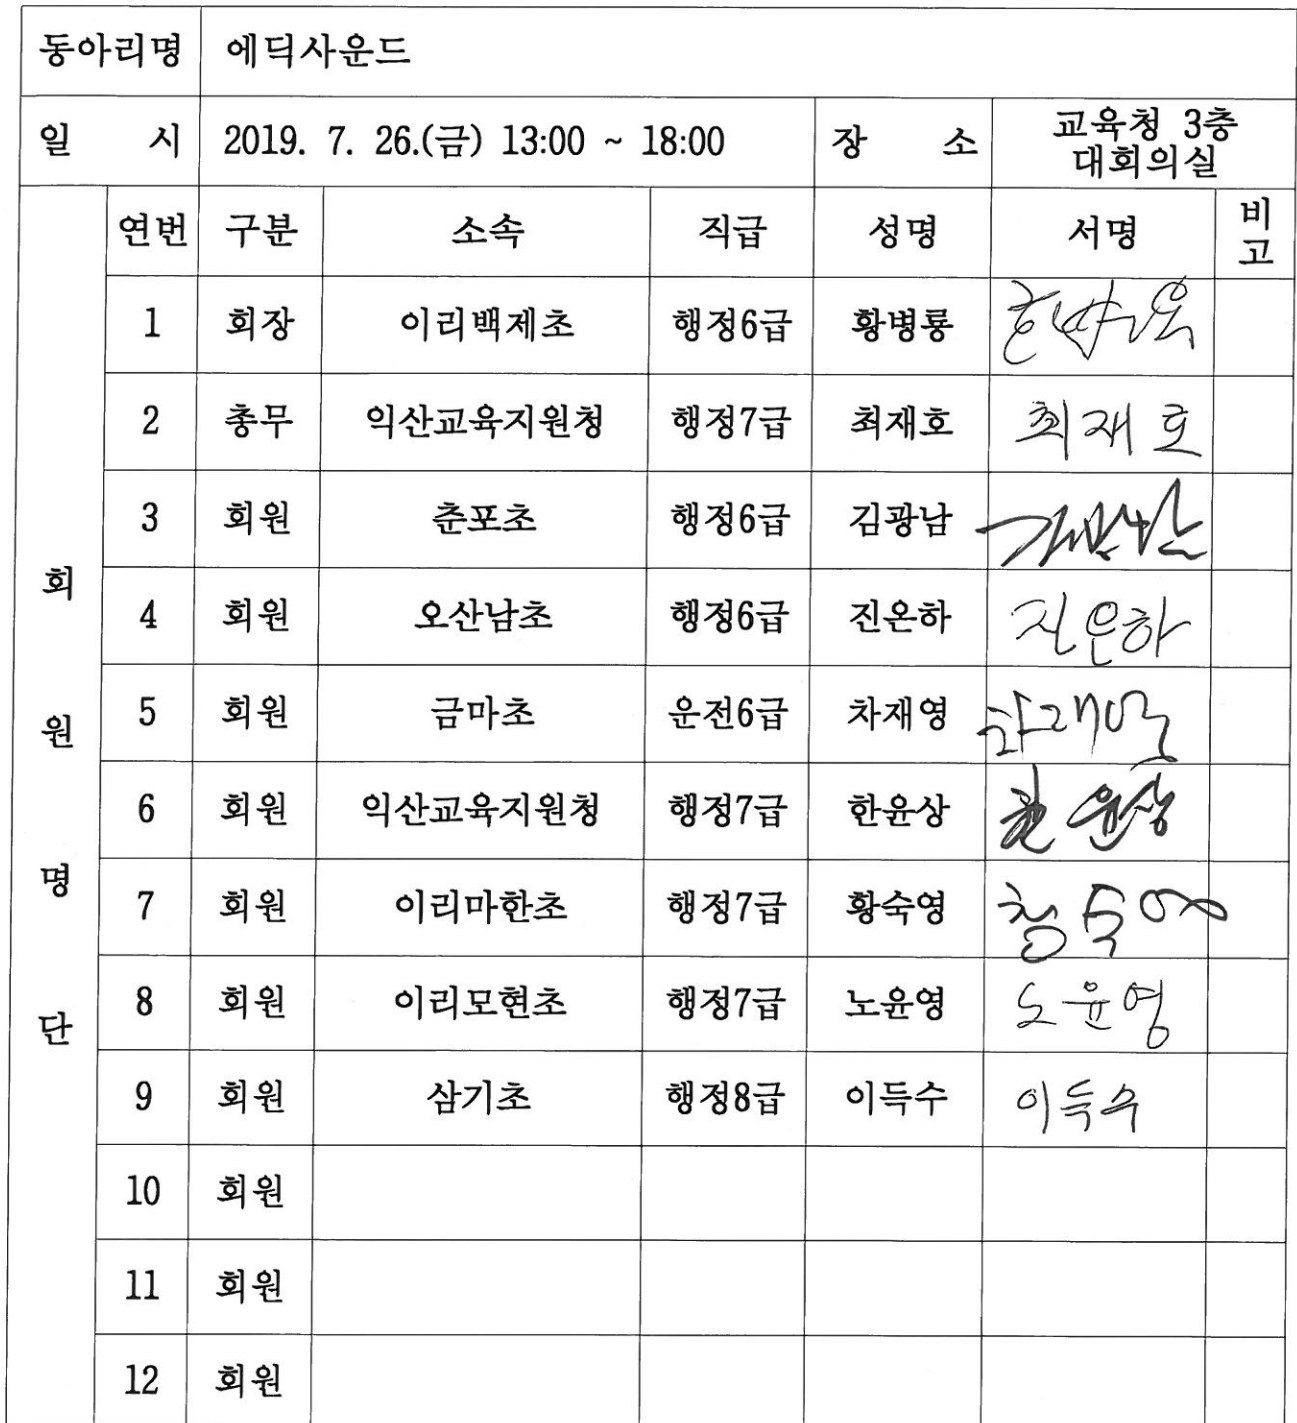 동아리명 에딕사운드
일 시 2019. 7. 26.(금) 13:00 ~ 18:00 장 소 교육청 3층
대회의실
연번 구분 소속 직급 성명 서명 비고
1 회장 이리백제초 행정6급 황병룡
2 총무 익산교육지원청 행정7급 최재호 최재호
3 회원 춘포초 행정6급 김광남
4 회원 오산남초 행정6급 진은하 진은하
5 회원 금마초 운전6급 차재영 차재영
6 회원 익산교육지원청 행정7급 한윤상 한윤상
7 회원 이리마한초 행정7급 황숙영
8 회원 이리모현초 행정7급 노윤영 노윤영
9 회원 삼기초 행정8급 이득수 이득수
10 회원
11 회원
12 회원
회원명단